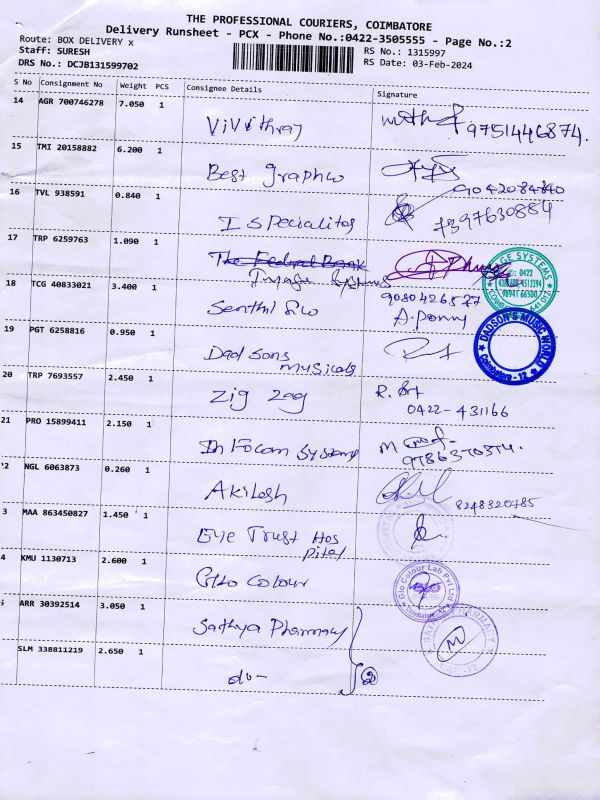 THE PROFESSIONAL COURIERS, COIMBATORE
Delivery Runsheet - PCX - Phone No.:0422-3505555 - Page No.:2
Route: BOX DELIVERY x
RS No.: 1315997
Staff: SURESH
RS Date: 03-Feb-2024
DRS No.: DCJB131599702
S No Consignment No Weight PCS Consignee Details Signature
14 AGR 700746278 7.050 1
Vivithraj 9751446874.
15 TMI 20158882 6.200 1
Best Graphco
16 TVL 938591 0.840 1
I Specialites 7397630884
17 TRP 6259763 1.090 1
The Federal Bank
Image Systems
18 TCG 40833021 3.400 1
Senthil &co A. Ponny
19 PGT 6258816 0.950 1
Dadsons
Musicals
DADSON'S MUSIC WORLD
Coimbatore - 12
20 TRP 7693557 2.450 1
Zig Zag
0422 - 431166
21 PRO 15899411 2.150 1
Infocom Systems
9786370374.
22 NGL 6063873 0.260 1
Akilesh
8248320785
3 MAA 863450827 1.450 1
Eye Trust Hos
pital
4 KMU 1130713 2.600 1
Glo Colour
Glo Colour Lab Pvt Ltd
ARR 30392514 3.050 1
Sathya Pharmacy
SLM 338811219 2.650 1
do- 2